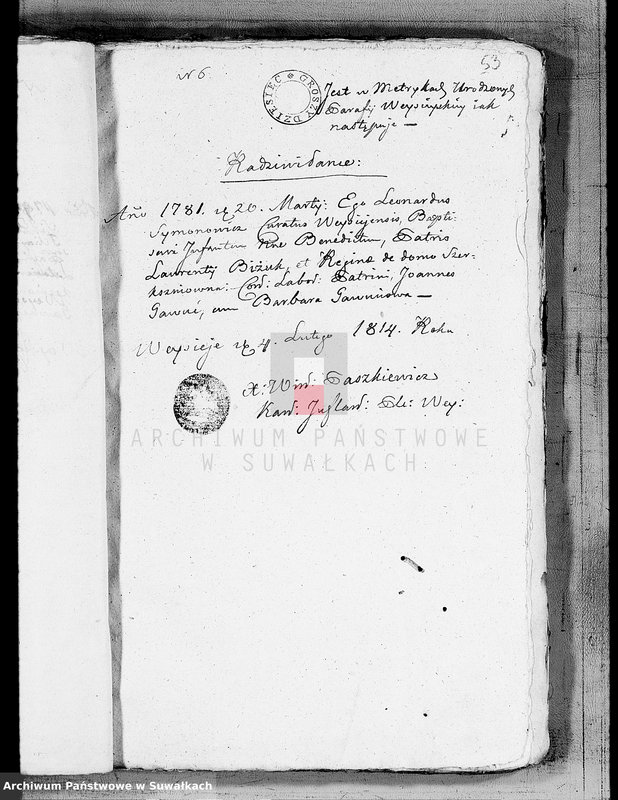 53
nr 6.
DZIESIEC GROSZY
Jest w Metrykach Urodzonych
Parafij Weysiyskiey iak
następuje —
Radziwidanie:
Año 1781. d 20. Martij: Ego Leonardus
Symonowicz Curatus Weysiejensis, Bapti-
savi Infantem Nne Benedictum, Patris
Laurenty Bižuk, et Reginæ de domo Szer-
kszniowna. Con: Labor: Patrini, Joannes
Gawuć, cum Barbara Gawuiowa —
Weysieje d 4. Lutego 1814. Roku
X: Win: Paszkiewicz
Kan: Inflan: Ple: Wey:
ARCHIWUM PAŃSTWOWE
W SUWAŁKACH
Archiwum Państwowe w Suwałkach